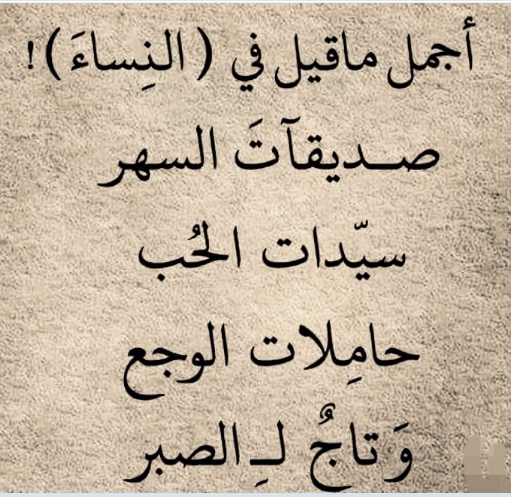 أجمل ماقيل في (النِساءَ)!
صـديقآتَ السهر
سيّدات الحُب
حامِلات الوجع
وَ تاجٌ لـِ الصبر